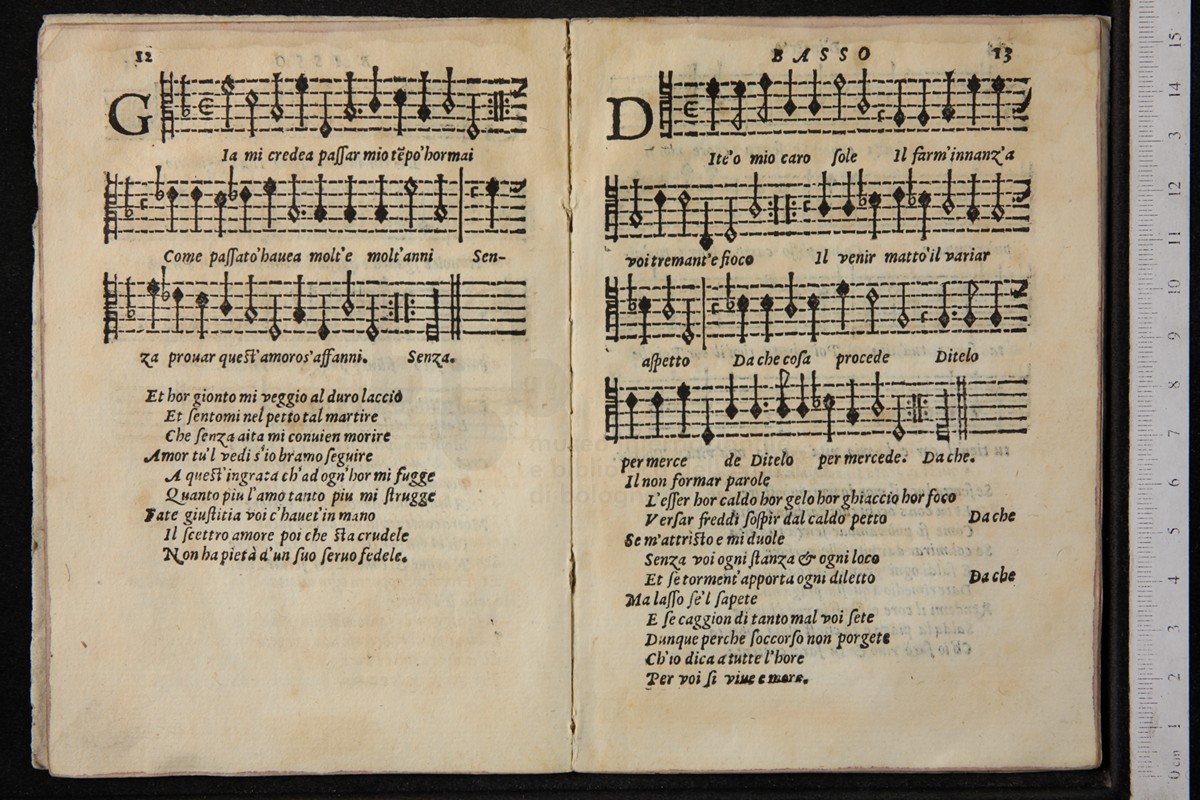 12
G
Ia mi credea paſſar mio tẽpo'hormai
Come paſſato'hauea molt'e molt'anni Sen-
za prouar queſt'amoros'affanni. Senza.
Et hor gionto mi veggio al duro laccio
Et ſentomi nel petto tal martire
Che ſenza aita mi conuien morire
Amor tu'l vedi s'io bramo ſeguire
A queſt'ingrata ch'ad ogn'hor mi fugge
Quanto piu l'amo tanto piu mi ſtrugge
Fate giuſtitia voi c'hauet'in mano
Il ſcettro amore poi che ſta crudele
Non ha pietà d'un ſuo ſeruo fedele.
BASSO 13
D
Ite'o mio caro ſole Il farm'innanz'a
voi tremant'e fioco Il venir matto'il variar
aſpetto Da che coſa procede Ditelo
per merce de Ditelo per mercede. Da che.
Il non formar parole
L'eſſer hor caldo hor gelo hor ghiaccio hor foco
Verſar freddi ſoſpir dal caldo petto Da che
Se m'attriſto e mi duole
Senza voi ogni ſtanza & ogni loco
Et ſe torment'apporta ogni diletto Da che
Ma laſſo ſe'l ſapete
E ſe caggion di tanto mal voi ſete
Dunque perche ſoccorſo non porgete
Ch'io dica a tutte l'hore
Per voi ſi viue e more.
museo
e biblioteca
di bologna
15
14
13
12
11
10
9
8
7
6
5
4
3
2
1
0 cm